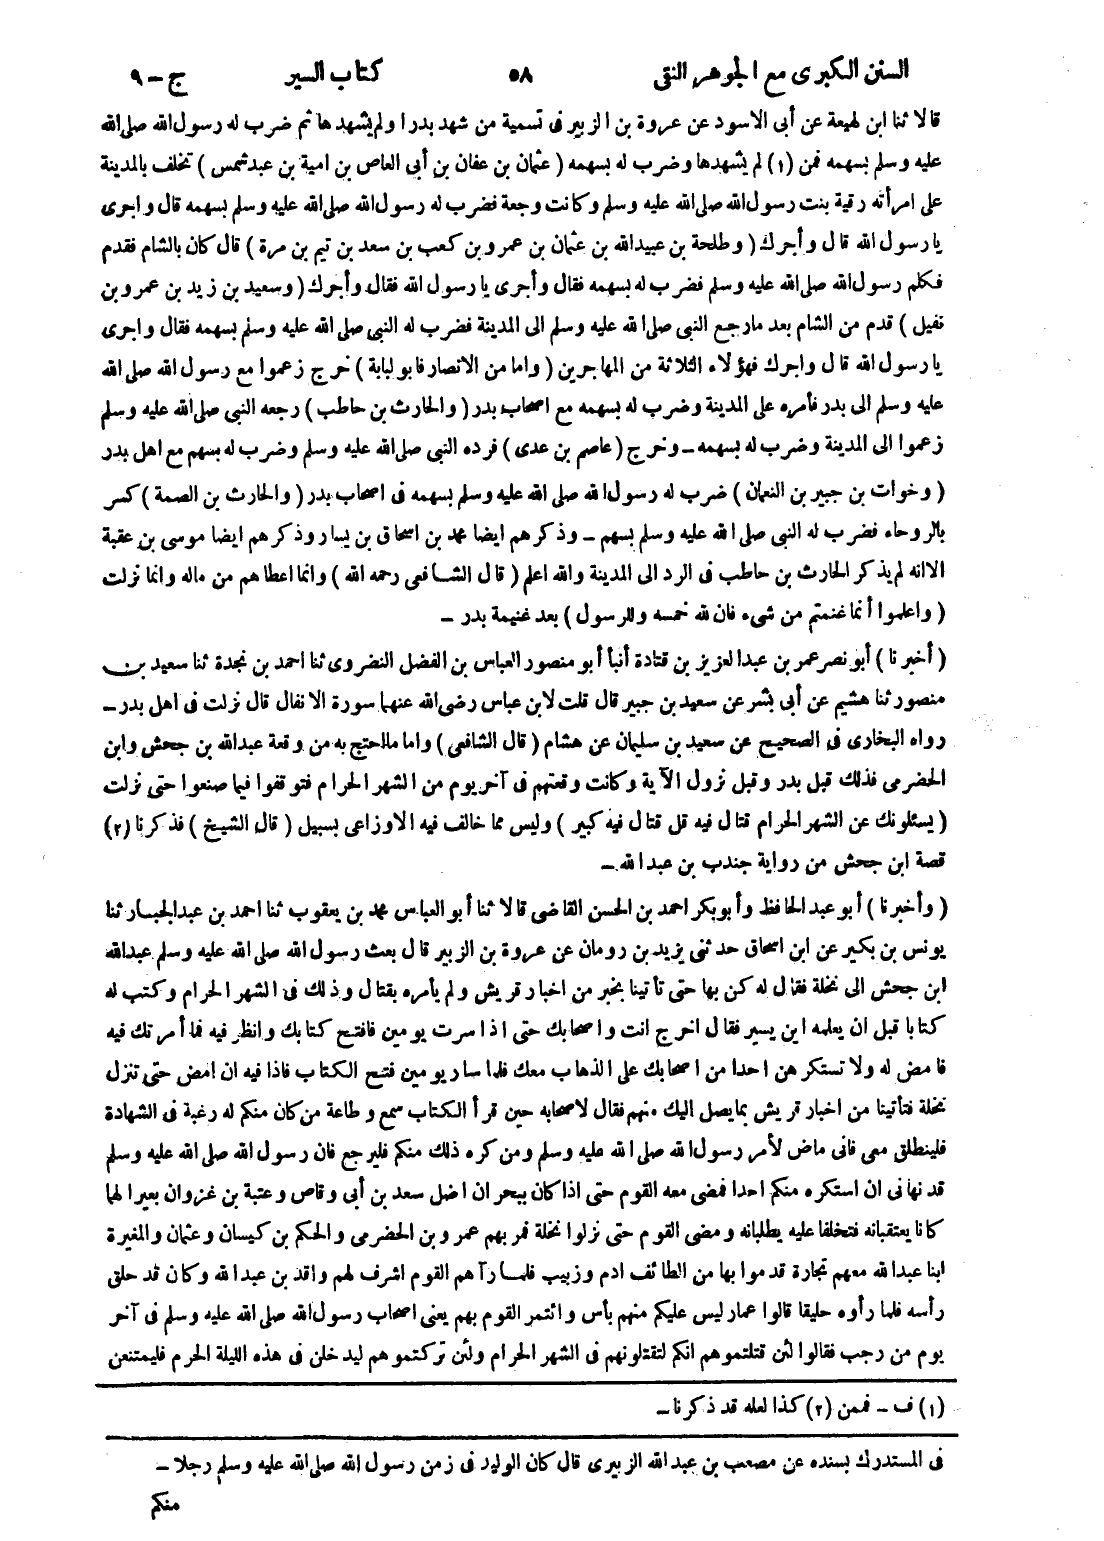 السنن الكبرى مع الجوهر النقى ٥٨ كتاب السير ج - ٩
قالا ثنا ابن لهيعة عن أبى الاسود عن عروة بن الزبير فى تسمية من شهد بدرا ولم يشهدها ثم ضرب له رسول الله صلى الله
عليه وسلم بسهمه فمن (١) لم يشهدها وضرب له بسهمه (عثمان بن عفان بن أبى العاص بن امية بن عبد شمس) تخلف بالمدينة
على امرأته رقية بنت رسول الله صلى الله عليه وسلم وكانت وجعة فضرب له رسول الله صلى الله عليه وسلم بسهمه قال واجرى
يا رسول الله قال وأجرك (وطلحة بن عبيدالله بن عثمان بن عمرو بن كعب بن سعد بن تيم بن مرة) قال كان بالشام فقدم
فكلم رسول الله صلى الله عليه وسلم فضرب له بسهمه فقال وأجرى يا رسول الله فقال وأجرك (وسعيد بن زيد بن عمرو بن
نفيل) قدم من الشام بعد مارجع النبى صلى الله عليه وسلم الى المدينة فضرب له النبى صلى الله عليه وسلم بسهمه فقال واجرى
يا رسول الله قال واجرك فهؤلاء الثلاثة من المهاجرين (واما من الانصار فابو لبابة) خرج زعموا مع رسول الله صلى الله
عليه وسلم الى بدر فأمره على المدينة وضرب له بسهمه مع اصحاب بدر (والحارث بن حاطب) رجعه النبى صلى الله عليه وسلم
زعموا الى المدينة وضرب له بسهمه - وخرج (عاصم بن عدى) فرده النبى صلى الله عليه وسلم وضرب له بسهم مع اهل بدر
(وخوات بن جبير بن النعمان) ضرب له رسول الله صلى الله عليه وسلم بسهمه فى اصحاب بدر (والحارث بن الصمة) كسر
بالروحاء فضرب له النبى صلى الله عليه وسلم بسهم - وذكرهم ايضا محمد بن اسحاق بن يسار وذكرهم ايضا موسى بن عقبة
الا انه لم يذكر الحارث بن حاطب فى الرد الى المدينة والله اعلم (قال الشافعى رحمه الله) وانما اعطاهم من ماله وانما نزلت
(واعلموا أنما غنمتم من شىء فان لله خمسه وللرسول) بعد غنيمة بدر -
(أخبرنا) أبو نصر عمر بن عبد العزيز بن قتادة أنبأ أبو منصور العباس بن الفضل النضروى ثنا احمد بن نجدة ثنا سعيد بن
منصور ثنا هشيم عن أبى بشر عن سعيد بن جبير قال قلت لابن عباس رضى الله عنهما سورة الانفال قال نزلت فى اهل بدر -
رواه البخارى فى الصحيح عن سعيد بن سليمان عن هشام (قال الشافعى) واما ما احتج به من وقعة عبدالله بن جحش وابن
الحضرمى فذلك قبل بدر وقبل نزول الآية وكانت وقعتهم فى آخر يوم من الشهر الحرام فتوقفوا فيما صنعوا حتى نزلت
(يسئلونك عن الشهر الحرام قتال فيه قل قتال فيه كبير) وليس مما خالف فيه الاوزاعى بسبيل (قال الشيخ) فذكرنا (٢)
قصة ابن جحش من رواية جندب بن عبدالله -
(وأخبرنا) أبو عبد الحافظ وأبو بكر احمد بن الحسن القاضى قالا ثنا أبو العباس محمد بن يعقوب ثنا احمد بن عبد الجبار ثنا
يونس بن بكير عن ابن اسحاق حدثنى يزيد بن رومان عن عروة بن الزبير قال بعث رسول الله صلى الله عليه وسلم عبدالله
ابن جحش الى نخلة فقال له كن بها حتى تأتينا بخبر من اخبار قريش ولم يأمره بقتال وذلك فى الشهر الحرام وكتب له
كتابا قبل ان يعلمه اين يسير فقال اخرج انت واصحابك حتى اذا سرت يومين فافتح كتابك وانظر فيه فما أمرتك فيه
فامض له ولا تستكرهن احدا من اصحابك على الذهاب معك فلما سار يومين فتح الكتاب فاذا فيه ان امض حتى تنزل
نخلة فتأتينا من اخبار قريش بما يصل اليك منهم فقال لاصحابه حين قرأ الكتاب سمع وطاعة من كان منكم له رغبة فى الشهادة
فلينطلق معى فانى ماض لأمر رسول الله صلى الله عليه وسلم ومن كره ذلك منكم فليرجع فان رسول الله صلى الله عليه وسلم
قد نهانى ان استكره منكم احدا فمضى معه القوم حتى اذا كان ببحران اضل سعد بن أبى وقاص وعتبة بن غزوان بعيرا لهما
كانا يعتقبانه فتخلفا عليه يطلبانه ومضى القوم حتى نزلوا نخلة فمر بهم عمرو بن الحضرمى والحكم بن كيسان وعثمان والمغيرة
ابنا عبدالله معهم تجارة قدموا بها من الطائف ادم وزبيب فلما رآهم القوم اشرف لهم واقد بن عبدالله وكان قد حلق
رأسه فلما رأوه حليقا قالوا عمار ليس عليكم منهم بأس وائتمر القوم بهم يعنى اصحاب رسول الله صلى الله عليه وسلم فى آخر
يوم من رجب فقالوا لئن قتلتموهم انكم لتقتلونهم فى الشهر الحرام ولئن تركتموهم ليدخلن فى هذه الليلة الحرم فليمتنعن
(١) ف - فممن (٢) كذا لعله قد ذكرنا -
فى المستدرك بسنده عن مصعب بن عبدالله الزبيرى قال كان الوليد فى زمن رسول الله صلى الله عليه وسلم رجلا -
منكم